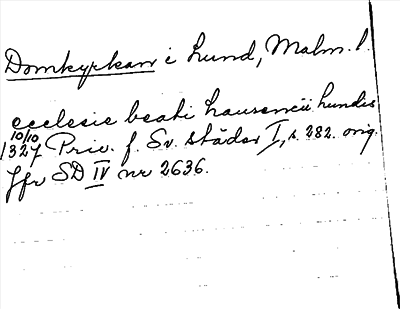 Domkyrkan i Lund, Malm. l.
ecclesie beati Laurencii Lundis
10/10 1327 Priv. f. Sv. städer I, s. 282. orig.
Jfr SD IV nr 2636.